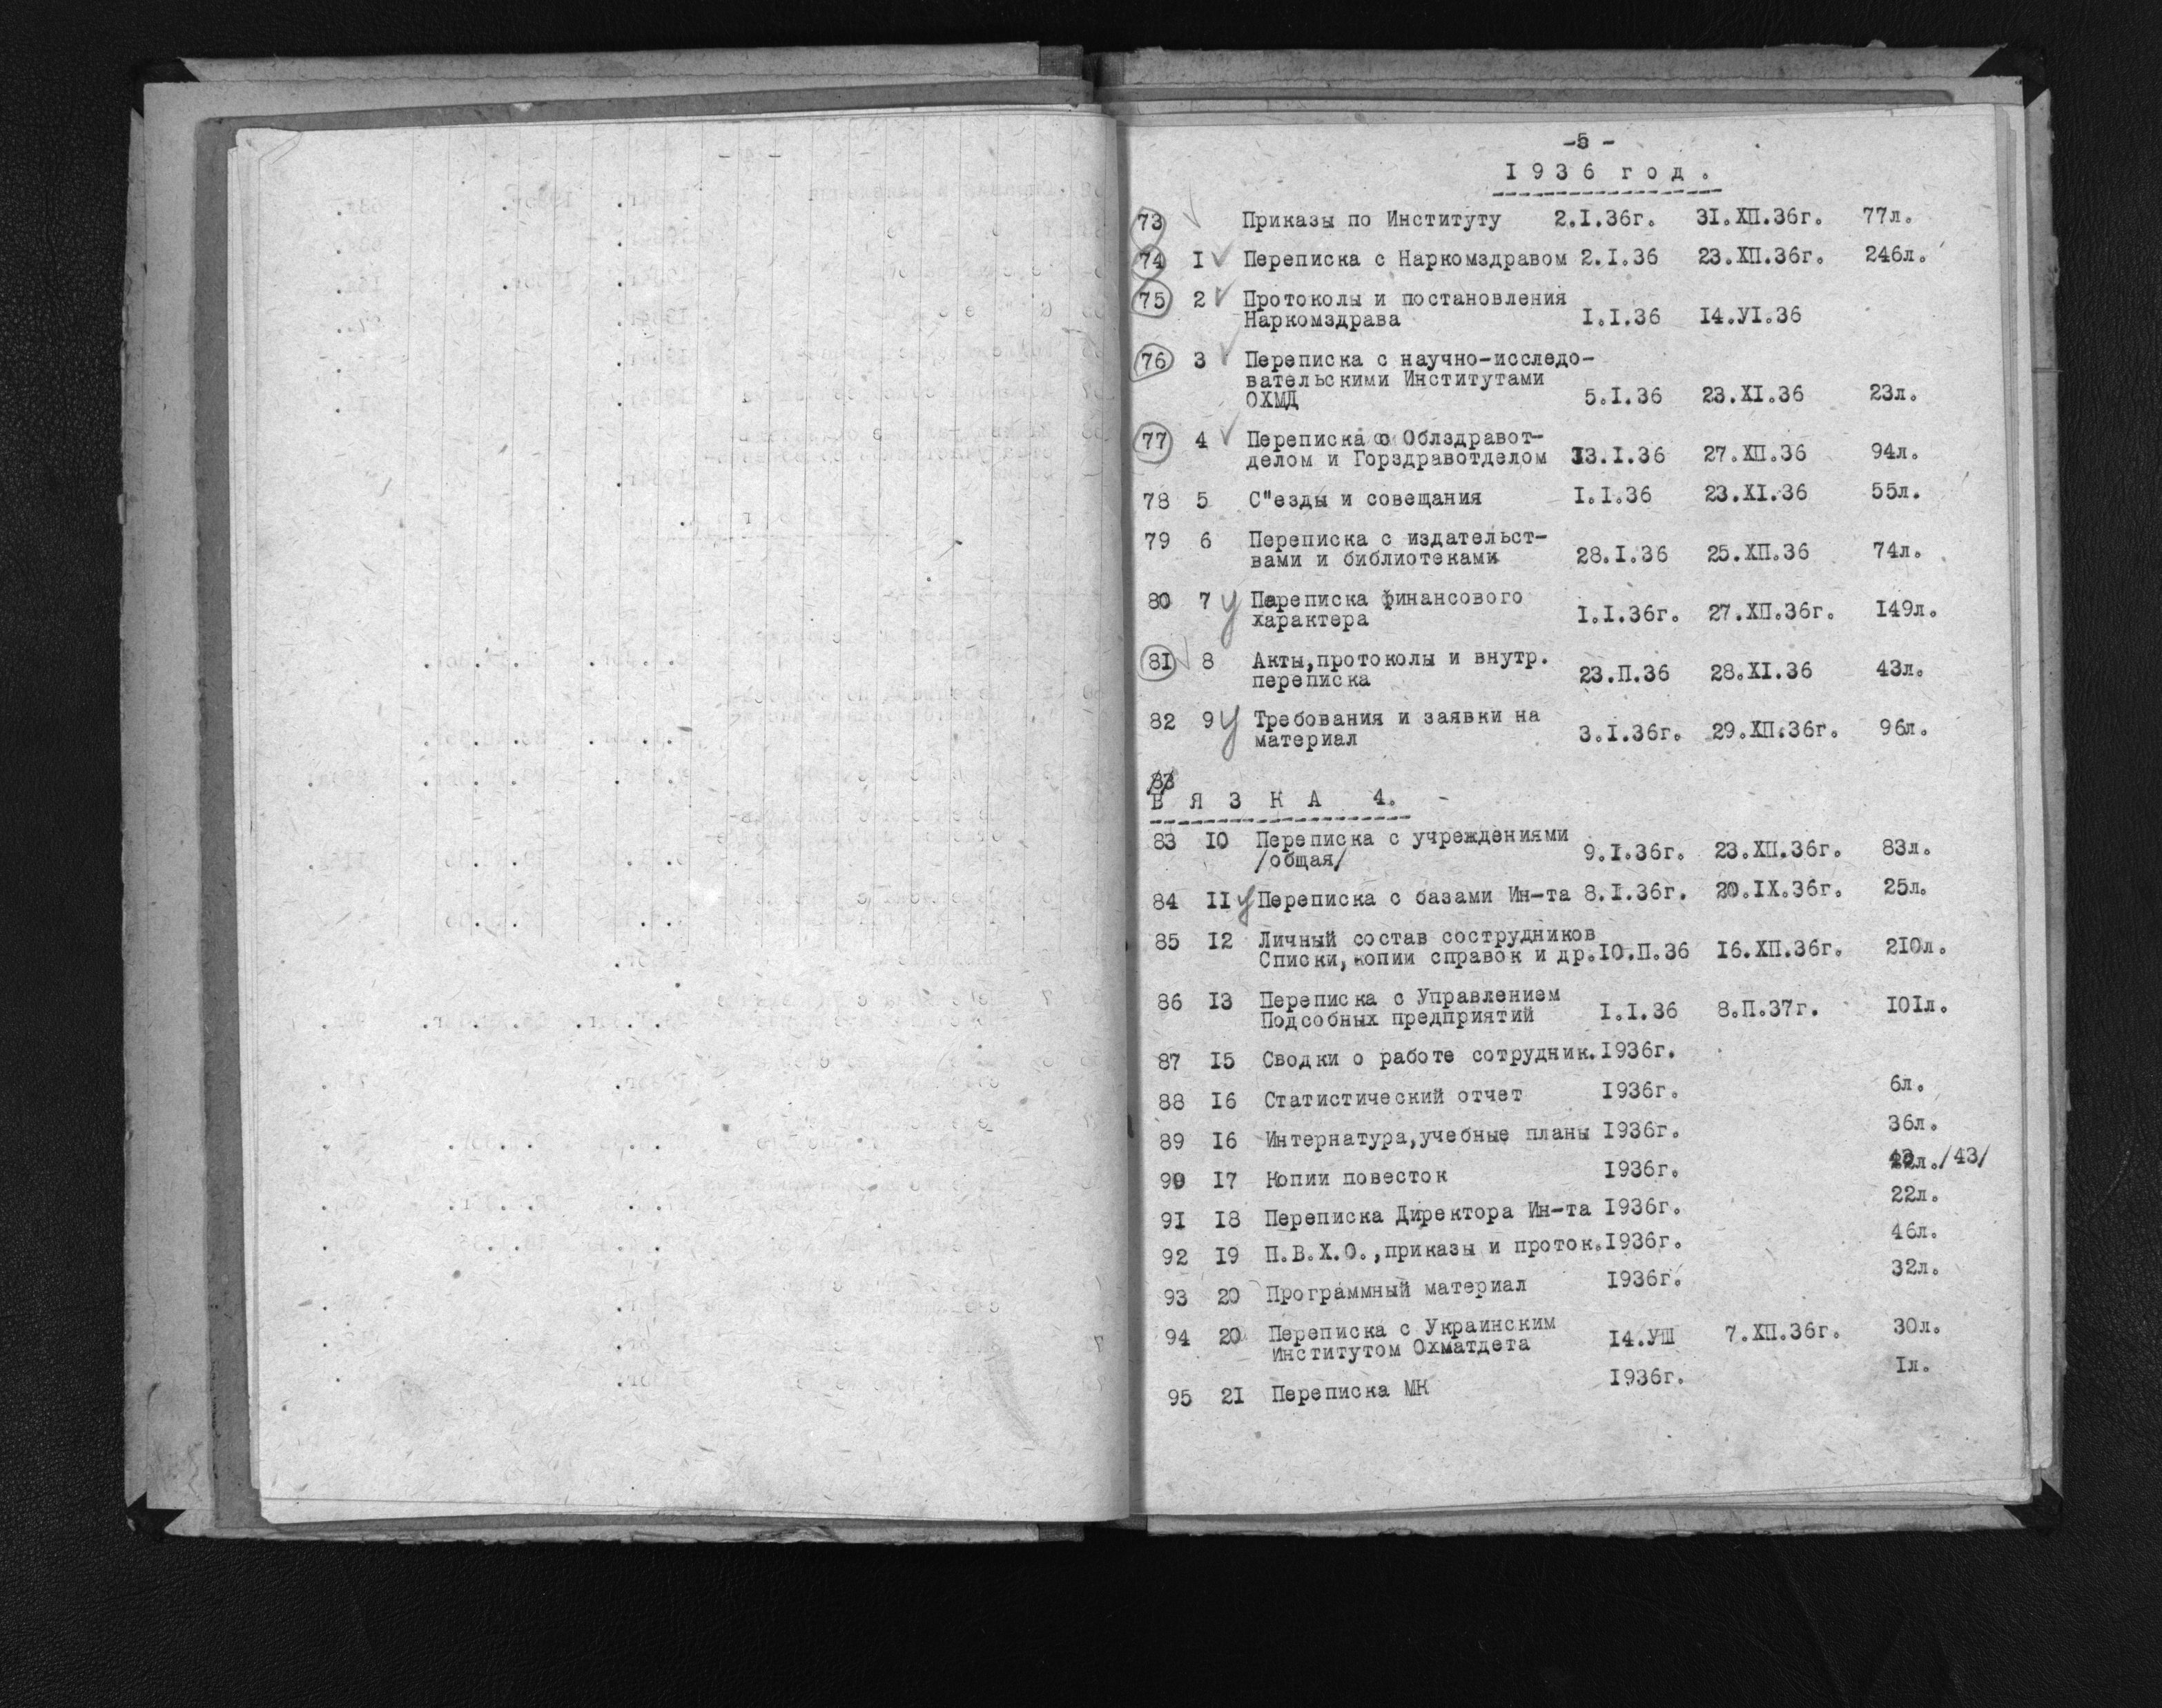 -5-
1936 год.
73 Приказы по Институту 2.I.36г. 31.ХП.36г. 77л.
74 I Переписка с Наркомздравом 2.I.36 23.ХП.36г. 246л.
75 2 Протоколы и постановления
Наркомздрава I.I.36 I4.УI.36
76 3 Переписка с научно-исследо-
вательскими Институтами
ОХМД 5.I.36 23.XI.36 23л.
77 4 Переписка с Облздравот-
делом и Горздравотделом I3.I.36 27.ХП.36 94л.
78 5 С"езды и совещания I.I.36 23.XI.36 55л.
79 6 Переписка с издательст-
вами и библиотеками 28.I.36 25.ХП.36 74л.
80 7 У Переписка финансового
характера I.I.36г. 27.ХП.36г. I49л.
8I 8 Акты,протоколы и внутр.
переписка 23.П.36 28.XI.36 43л.
82 9 У Требования и заявки на
материал 3.I.36г. 29.ХП.36г. 96л.
83
ВЯЗКА 4.
83 I0 Переписка с учреждениями
/общая/ 9.I.36г. 23.ХП.36г. 83л.
84 II у Переписка с базами Ин-та 8.I.36г. 20.IX.36г. 25л.
85 I2 Личный состав сострудников
Списки,копии справок и др.I0.П.36 I6.ХП.36г. 2I0л.
86 I3 Переписка с Управлением
Подсобных предприятий I.I.36 8.П.37г. I0Iл.
87 I5 Сводки о работе сотрудник.I936г.
88 I6 Статистический отчет I936г. 6л.
89 I6 Интернатура,учебные планы I936г. 36л.
90 I7 Копии повесток I936г. л./43/
9I I8 Переписка Директора Ин-та I936г. 22л.
92 I9 П.В.Х.О.,приказы и проток.I936г. 46л.
93 20 Программный материал I936г. 32л.
94 20 Переписка с Украинским
Институтом Охматдета I4.УШ 7.ХП.36г. 30л.
95 2I Переписка МК I936г. Iл.